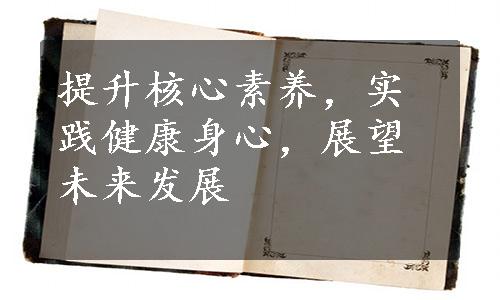 提升核心素养，实
践健康身心，展望
未来发展